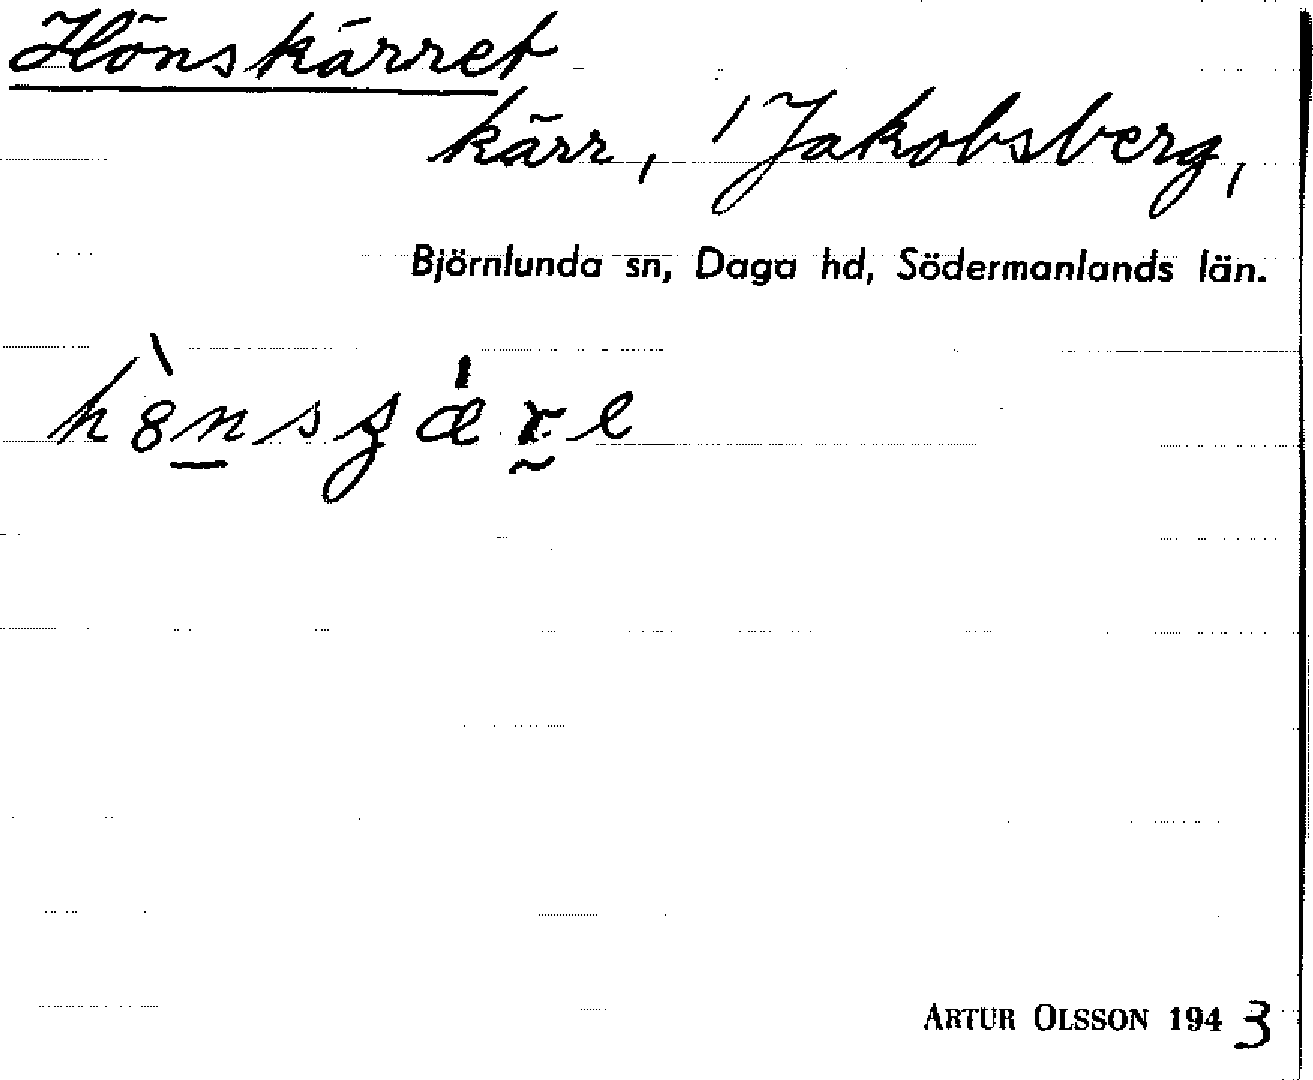 Hönskärret
kärr, 'Jakobsberg,
Björnlunda sn, Daga hd, Södermanlands län.
ARTUR OLSSON 1943